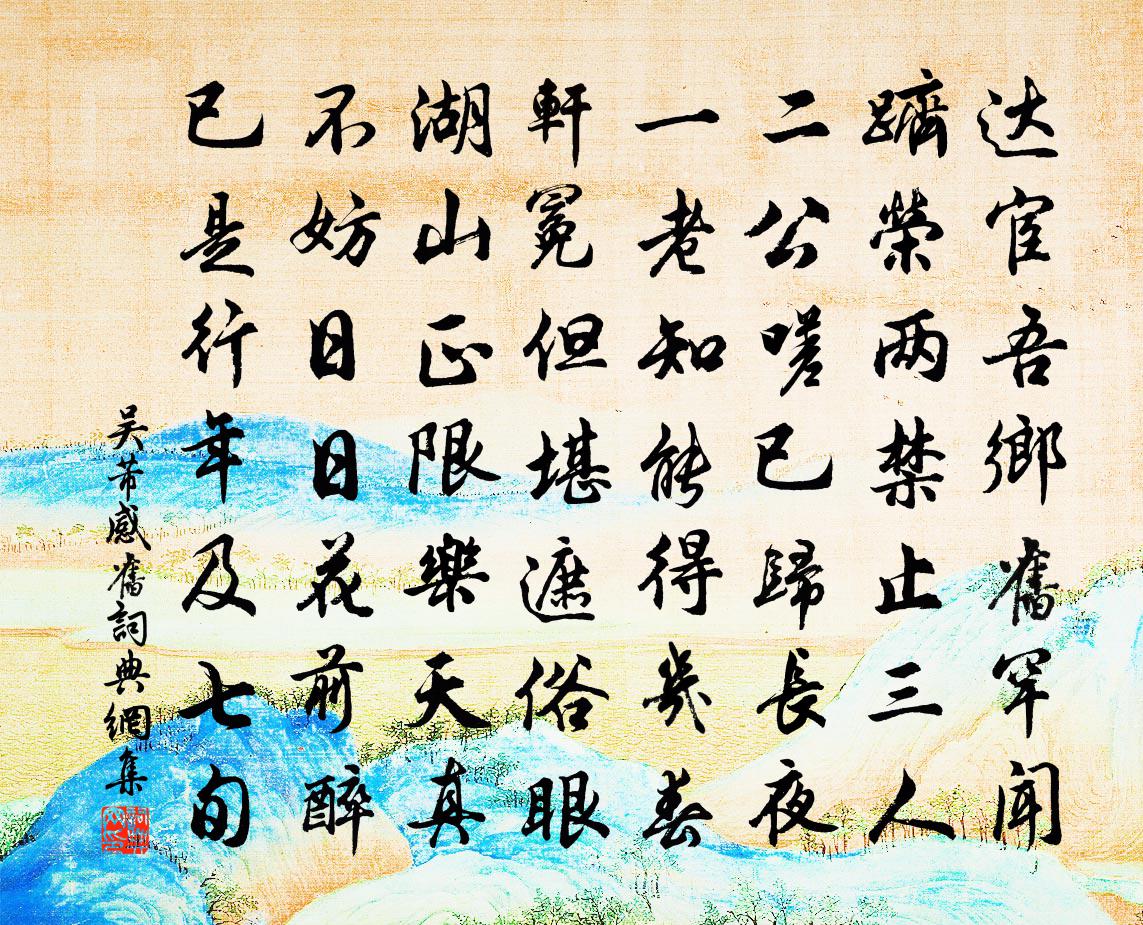 达宦吾鄉舊罕聞
躋榮两禁止三人
二公嗟已歸長夜
一老知能得幾春
軒冕但堪遮俗眼
湖山正限樂天真
不妨日日花前醉
已是行年及七旬
吴芾感舊詞典網集